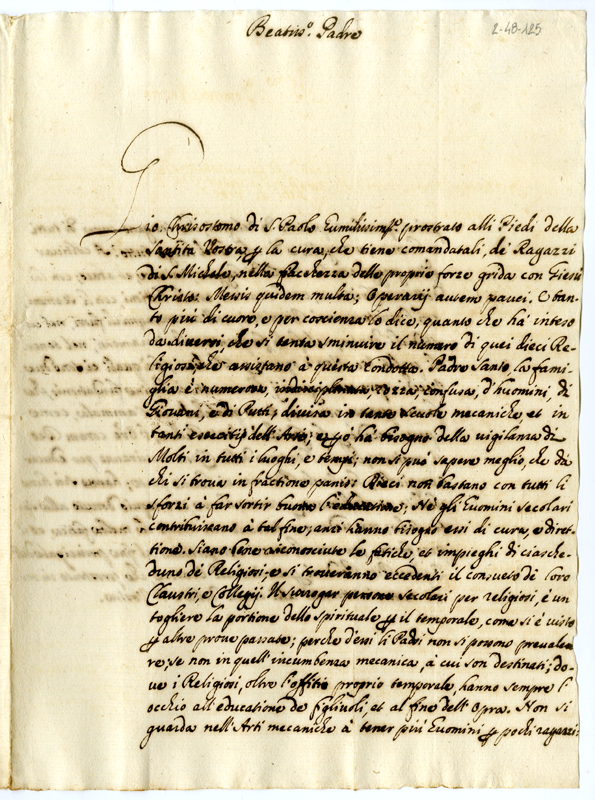 Beatiss.º Padre
2-48-125
Gio. Chrisostomo di S. Paolo humilissim.te prostrato alli Piedi della
Santità Vostra, ꝑ la cura, che tiene comandatali, de Ragazzi
di S. Michele, nella fiacchezza delle proprie forze grida con Giesù
Christo: Messis quidem multa; Operarij autem pauci. E tan-
to più di cuore, e per coscienza lo dice, quanto che hà inteso
da diversi che si tenta sminuire il numero di quei dieci Re-
ligiosi, che assistano à questa condotta. Padre Santo, la fami-
glia è numerosa, indisciplinata, rozza, confusa, d'huomini, di
Giovani, e di Putti; divisa in tante Scuole mecaniche, et in
tanti esercitij dell'Arti; e ꝑò hà bisogno della vigilanza di
Molti in tutti i luoghi, e tempi; non si può sapere meglio, che da
chi si trova in fractione panis: Dieci non bastano con tutti li
sforzi à far sortir buona l'educatione; Nè gli huomini secolari
contribuiscano à tal fine; anzi hanno bisogno essi di cura, e diret-
tione. Siano bene riconosciute le fatiche, et impieghi di ciasche-
duno de Religiosi, e si troveranno eccedenti il consueto de loro
Claustri, e Collegij. Il surrogar persone secolari per religiosi, è un
togliere la portione dello spirituale ꝑ il temporale, come si è visto
ꝑ altre prove passate; perche d'essi li Padri non si possono prevale-
re, se non in quell'incumbenza mecanica, à cui son destinati; do-
ve i Religiosi, oltre l'offitio proprio temporale, hanno sempre l'
occhio all'educatione de figliuoli, et al fine dell'Opra. Non si
guarda nell'Arti mecaniche à tener più huomini ꝑ pochi ragazzi: